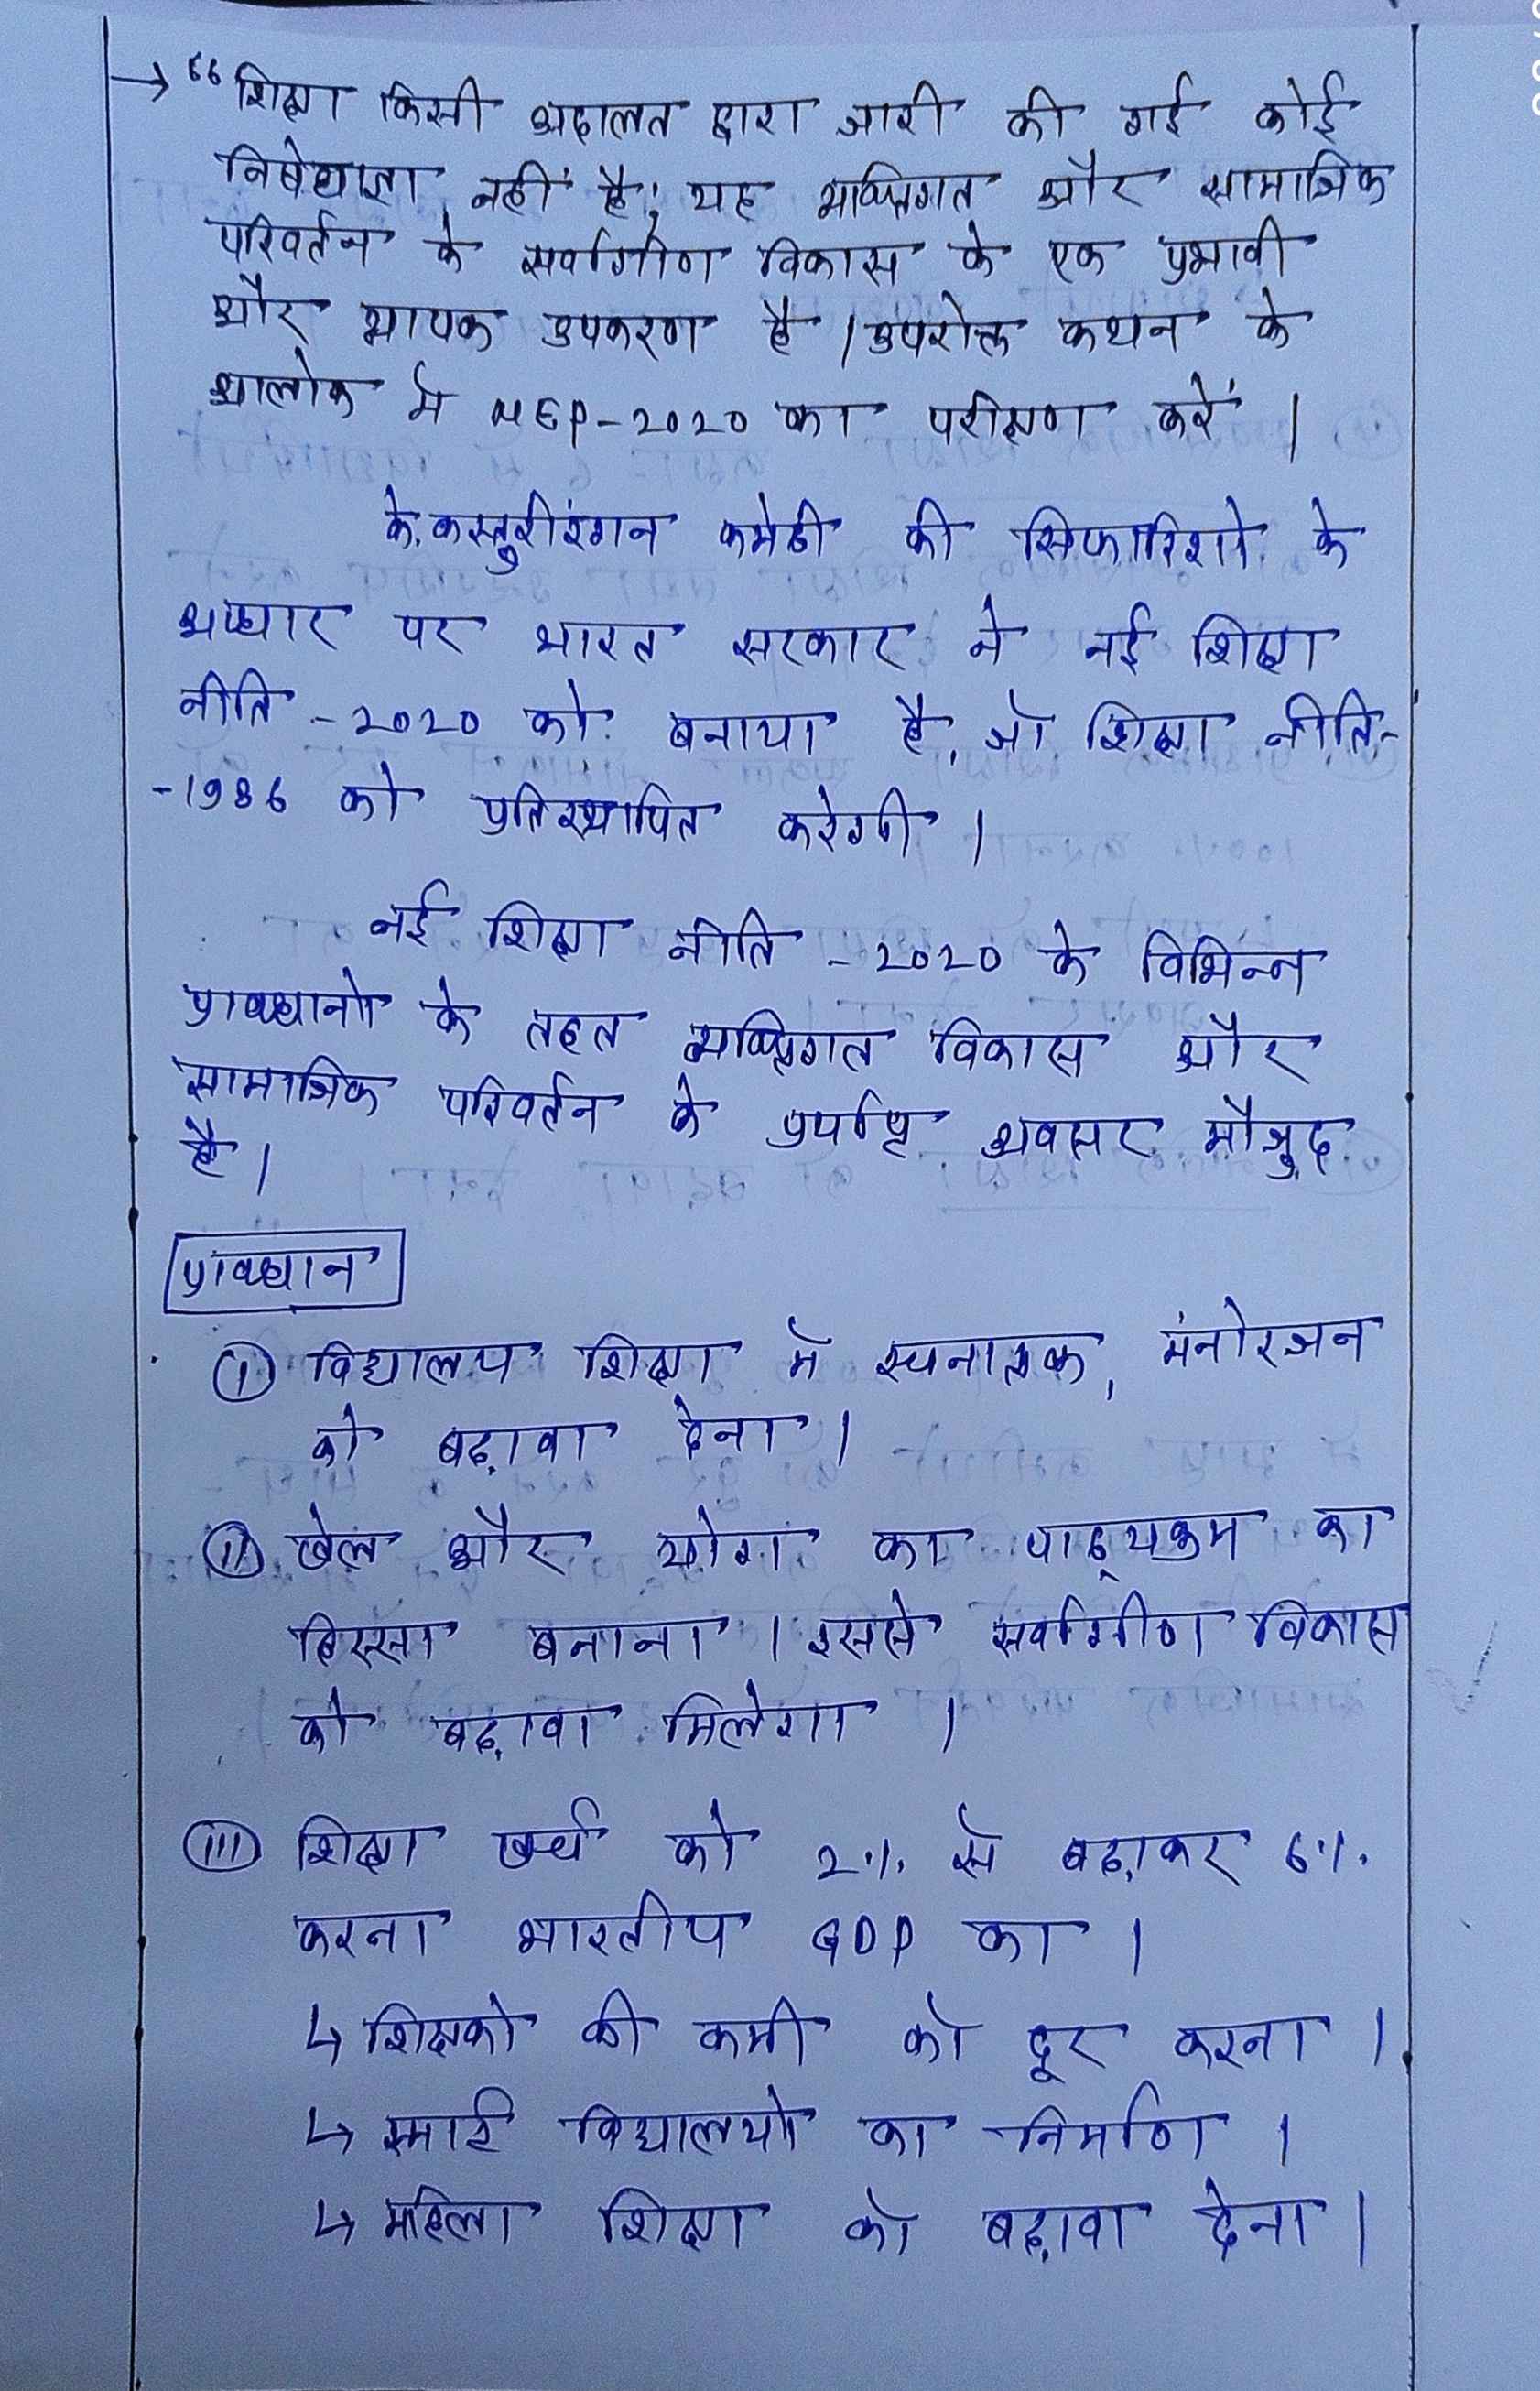 → “ शिक्षा किसी अदालत द्वारा जारी की गई कोई
निषेधाज्ञा नहीं है; यह व्यक्तिगत और सामाजिक
परिवर्तन के सर्वांगीण विकास के एक प्रभावी
और व्यापक उपकरण है । उपरोक्त कथन के
आलोक में NEP-2020 का परीक्षण करें ।
के. कस्तुरीरंगन कमेटी की सिफारिशो के
आधार पर भारत सरकार ने नई शिक्षा
नीति -2020 को बनाया है, जो शिक्षा नीति-
-1986 को प्रतिस्थापित करेगी ।
नई शिक्षा नीति -2020 के विभिन्न
प्रावधानो के तहत व्यक्तिगत विकास और
सामाजिक परिवर्तन के पर्याप्त अवसर मौजुद
है ।
प्रावधान
(i) विद्यालय शिक्षा मे रचनात्मक, मंनोरजन
को बढ़ावा देना ।
(ii) खेल और योग का पाठ्यक्रम का
हिस्सा बनाना । इससे सर्वागीण विकास
को बढ़ावा मिलेगा ।
(iii) शिक्षा खर्च को 2% से बढ़ाकर 6%
करना भारतीय GDP का ।
↳ शिक्षको की कमी को दूर करना ।
↳ स्मार्ट विद्यालयो का निर्माण ।
↳ महिला शिक्षा को बढ़ावा देना ।